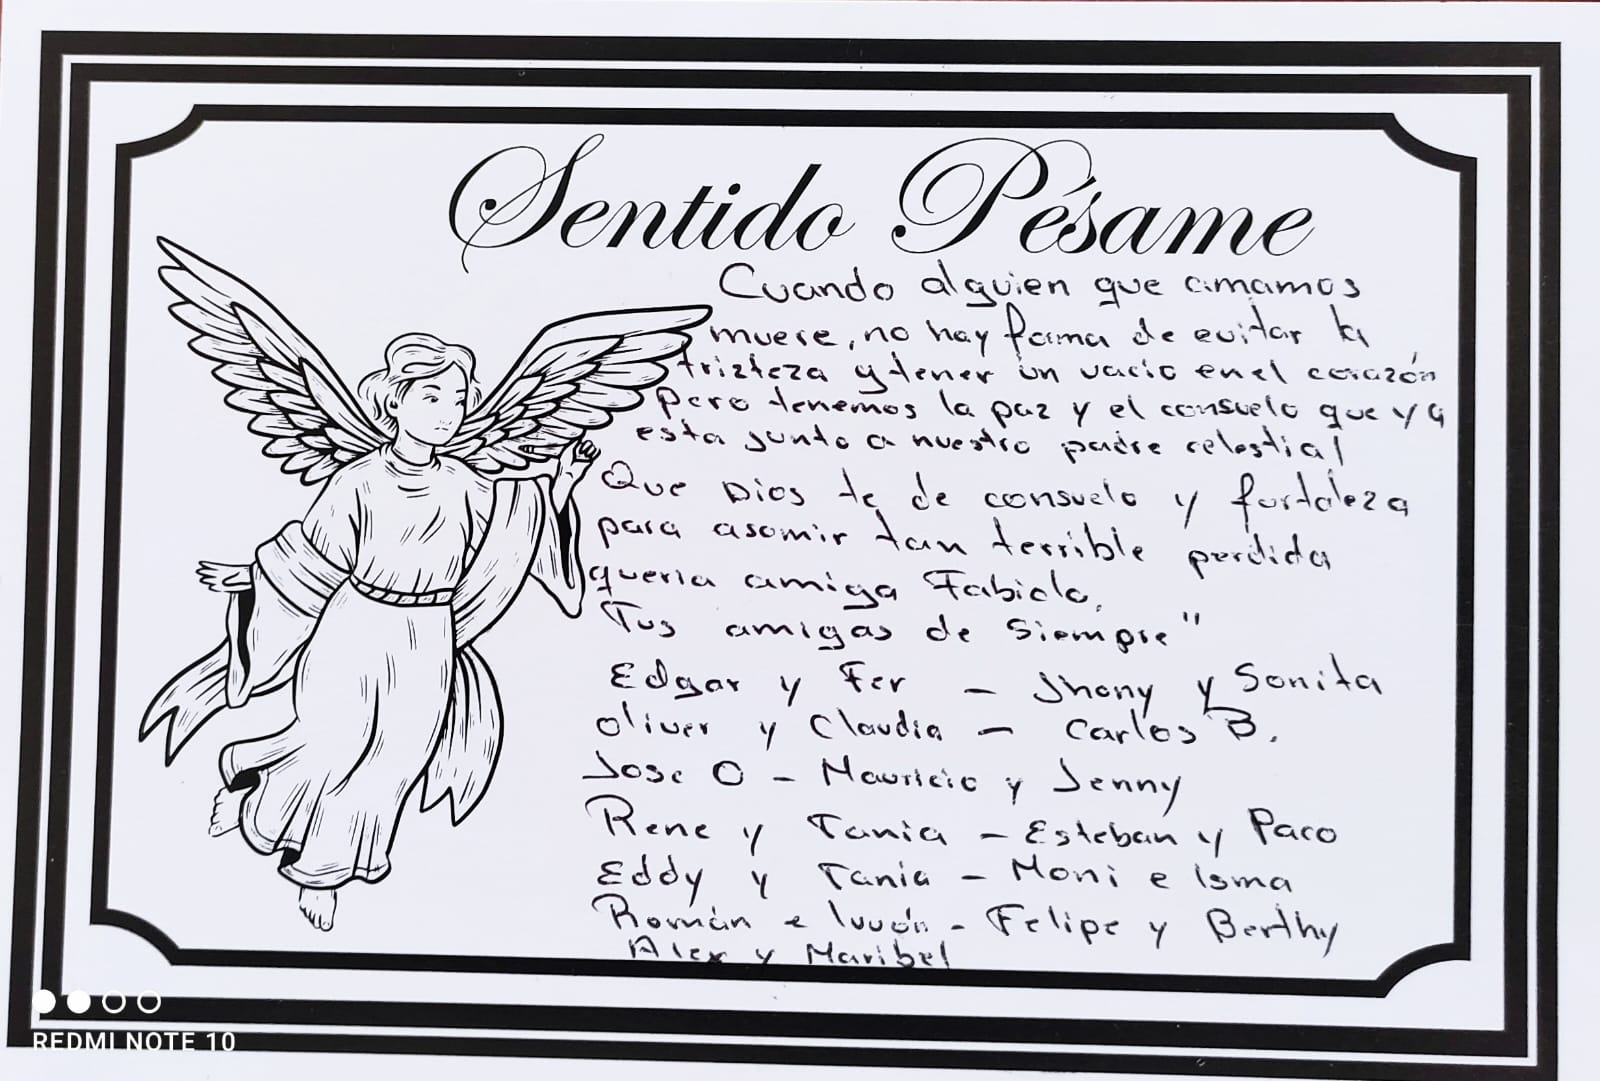 Sentido Pésame
Cuando alguien que amamos
muere, no hay forma de evitar la
trizteza y tener un vacio en el corazón
pero tenemos la paz y el consuelo que ya
esta junto a nuestro padre celestial
Que Dios te de consuelo y fortaleza
para asomir tan terrible perdida
queria amiga Fabiola.
Tus amigas de siempre"
Edgar y Fer - Jhony y Sonita
Oliver y Claudia - Carlos B.
Jose O - Mauricio y Jenny
Rene y Tania - Esteban y Paco
Eddy y Tania - Moni e Isma
Román e - Felipe y Berthy
Alex y Maribel
REDMI NOTE 10